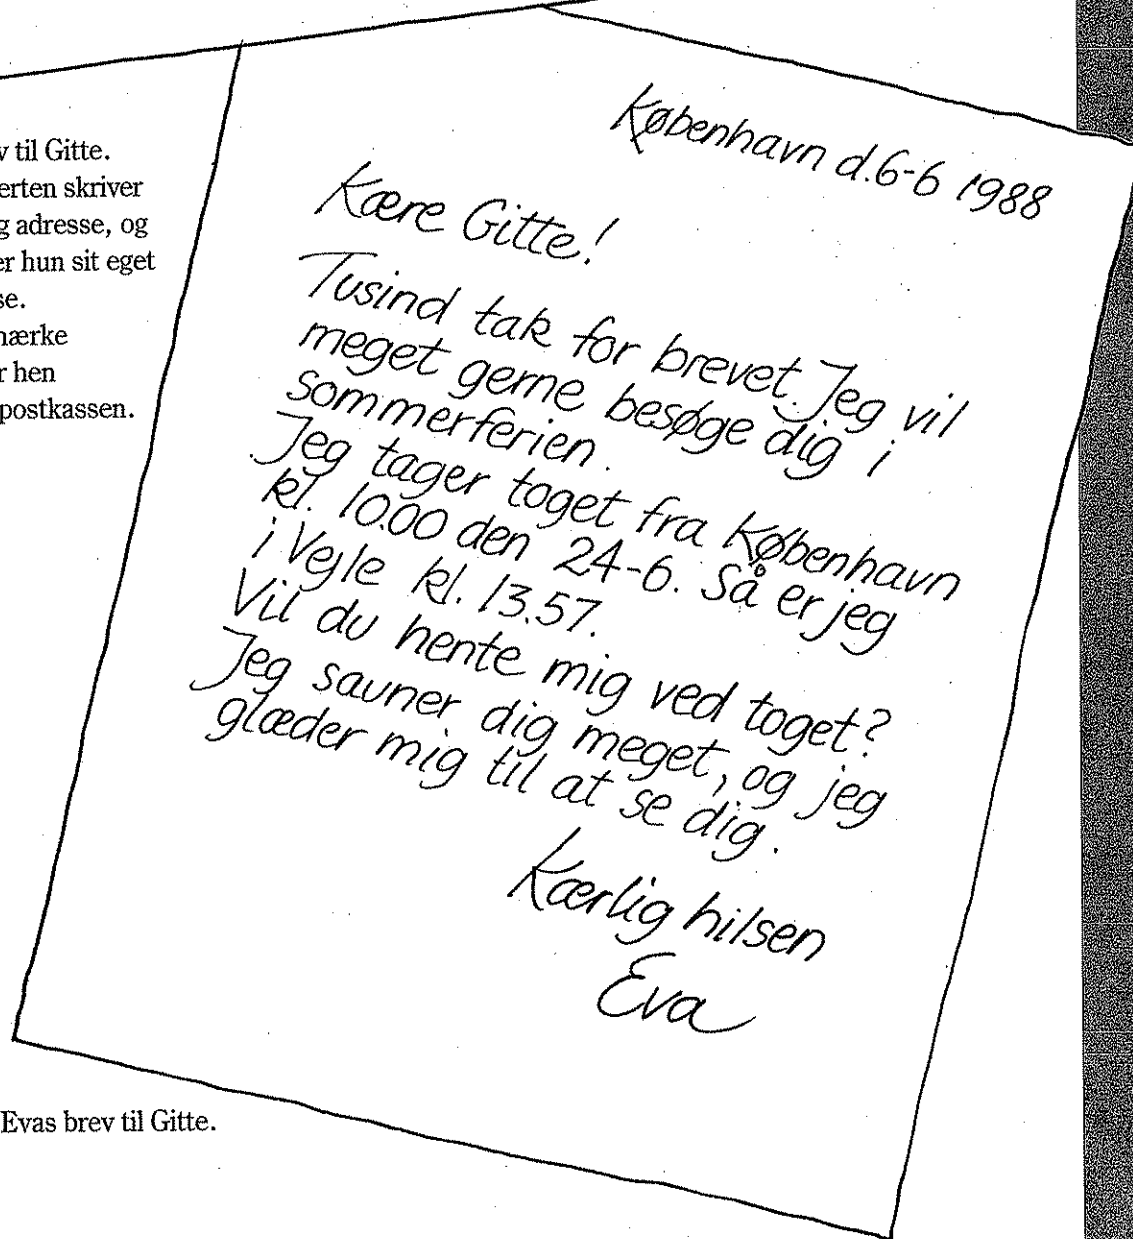 v til Gitte.
erten skriver
g adresse, og
er hun sit eget
se.
nærke
r hen
postkassen.
København d.6-6 1988
Kære Gitte!
Tusind tak for brevet. Jeg vil
meget gerne besøge dig i
sommerferien.
Jeg tager toget fra København
kl. 10.00 den 24-6. Så er jeg
i Vejle kl. 13.57.
Vil du hente mig ved toget?
Jeg savner dig meget, og jeg
glæder mig til at se dig.
Kærlig hilsen
Eva
Evas brev til Gitte.